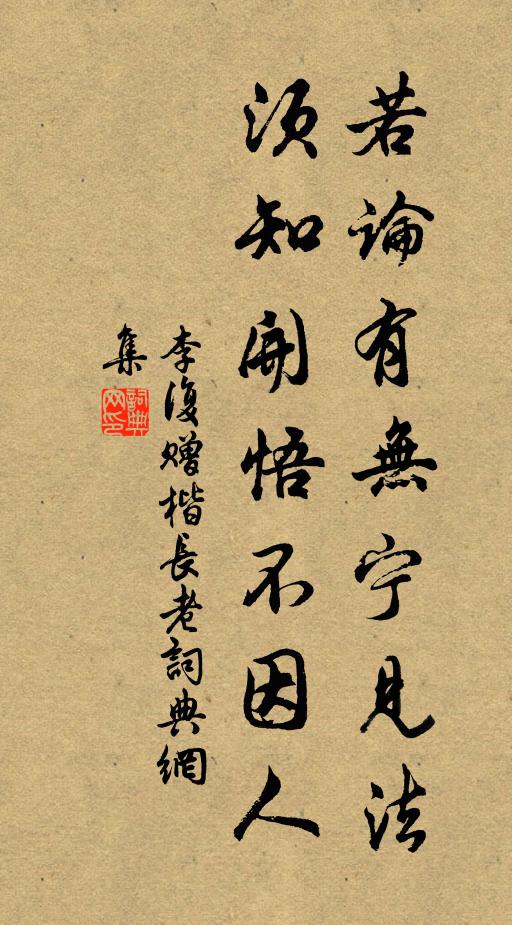 若論有無宁見法
須知開悟不因人
李復贈楷長老詞典網
集
詞典網印